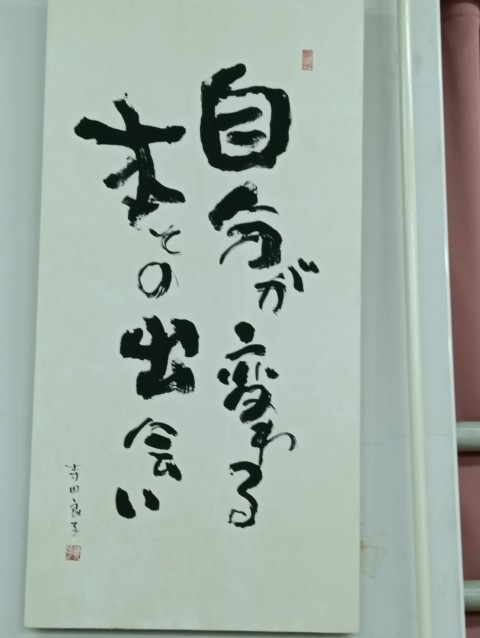 自分が変わる
本との出会い